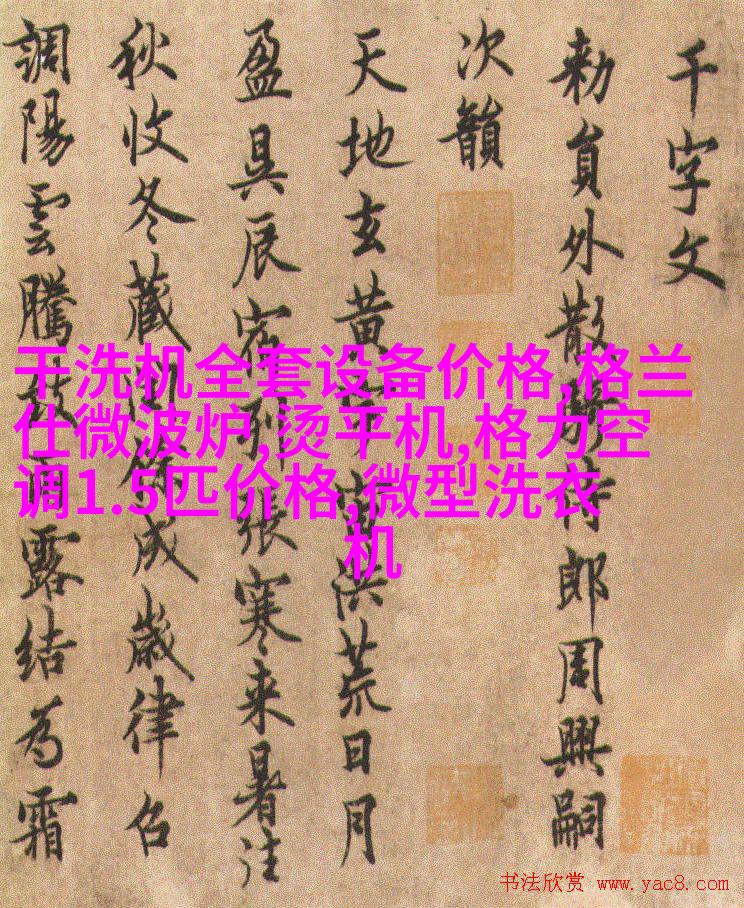 千字文
勑員外散騎侍郎周興嗣
次韻
天地玄黄宇宙洪荒日月
盈昃辰宿列張寒来暑往
秋收冬藏閏餘成歲律召
調陽雲騰致雨露結為霜
干洗机全套设备价格,格兰
仕微波炉,烫平机,格力空
调1.5匹价格,微型洗衣
机
书法欣赏 www.yac8.com